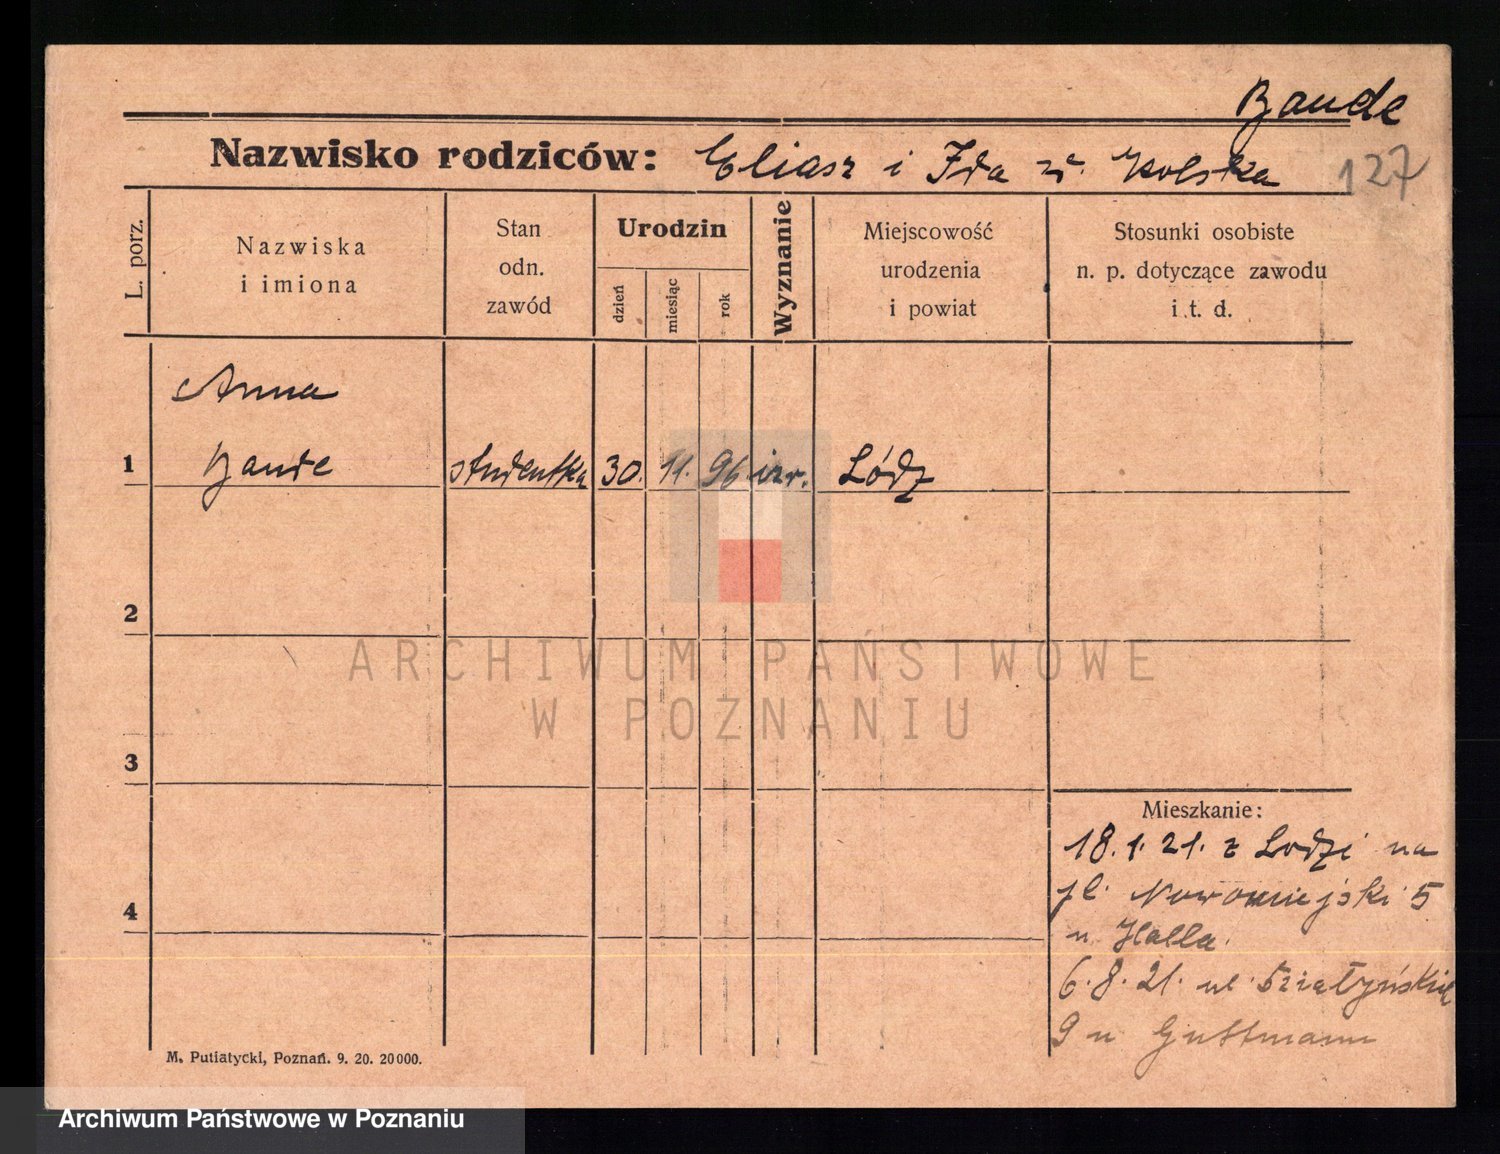 Bande
Nazwisko rodziców: Eliasz i Ida z. Kolska
127
L. porz.
Nazwiska
i imiona
Stan
odn.
zawód
Urodzin
dzień
miesiąc
rok
Wyznanie
Miejscowość
urodzenia
i powiat
Stosunki osobiste
n. p. dotyczące zawodu
i t. d.
Anna
1 Bande studentka 30. 11. 96 izr. Łódz
2
3
4
Mieszkanie:
18.1.21. z Lodzi na
pl. Nowomiejski 5
u Halla.
6.8.21. ul. Działyńskich
9 u Guttmann
M. Putiatycki, Poznań. 9. 20. 20000.
ARCHIWUM PAŃSTWOWE
W POZNANIU
Archiwum Państwowe w Poznaniu